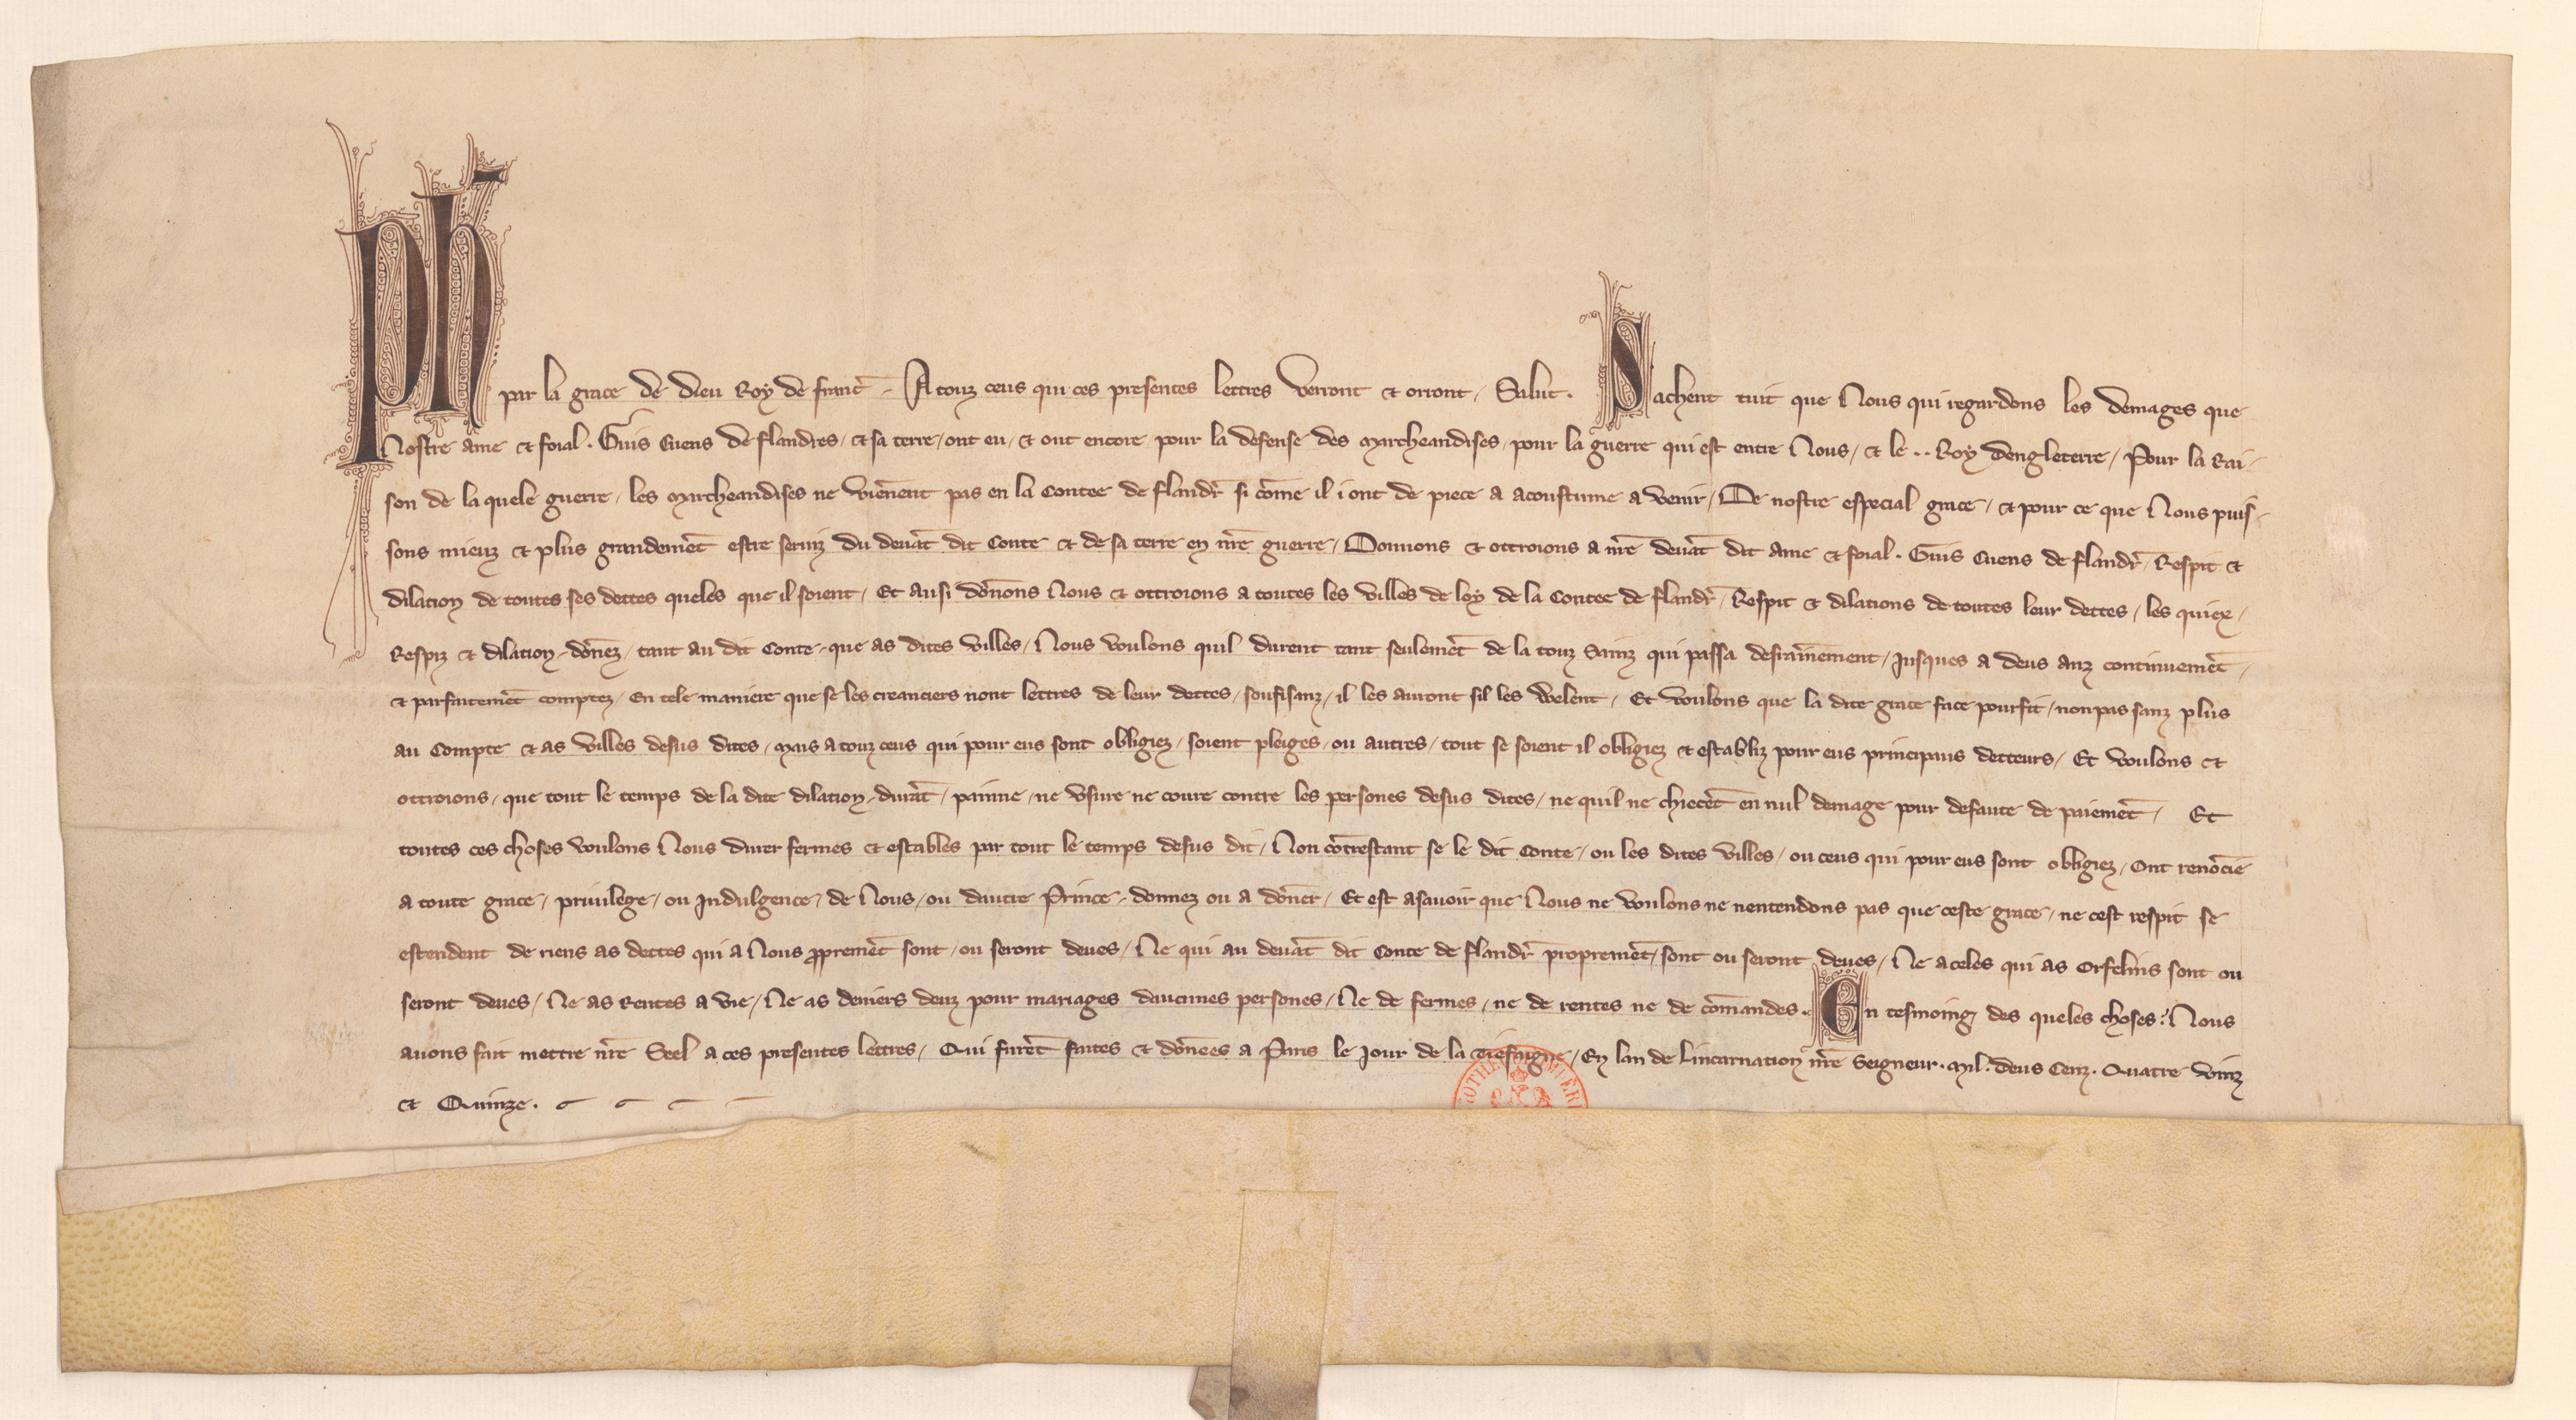 Ph par la grace de dieu Roy de franc̄ . A touz ceus qui ces presentes lettres verront et orront / Salut . Sachent tuit que Nous qui regardons les demages que
Nostre ame et foial . Guis Cuens de flandres / et sa terre / ont eu / et ont encore / pour la defense des Marcheandises / pour la guerre qui est entre Nous / et le .. Roy dengleterre / Pour la Rai-
son de la quele guerre / les Marcheandises ne vienēnt pas en la Contee de flandr̄ si cōme il i ont de piece a acoustume a venir / De nostre especial grace / et pour ce que Nous puis-
sons mieuz et plus grandemēt estre seruiz du deuāt dit Conte et de sa terre en nr̄e guerre / Donnons et ottroions a nr̄e deuāt dit ame et foial . Guis Cuens de flandr̄ / Respit et
dilacion de toutes ses dettes queles que il soient / Et ausi dōnons Nous et ottroions a toutes les villes de loy de la Contee de flandr̄ / Respit et dilations de toutes leur dettes / les quiex /
Respiz et dilacion / dōnez / tant au dit Conte / que as dites villes / Nous voulons quil durent tant seulemēt de la touz Sainz qui passa desrainēment / Jusques a deus anz continuemēt /
et parfaitemēt comptez / En tele maniere que se les creanciers nont lettres de leur dettes / soufisanz / il les auront sil les welent / Et voulons que la dite grace face pourfit / non pas sanz plus
au Compte et as villes desus dites / Mais a touz ceus qui pour eus sont obligiez / soient pleiges / ou autres / tout se soient il obligiez et establiz pour eus principaus detteurs / Et voulons et
ottroions / que tout le temps de la dite dilation / durāt / painne / ne vsure ne coure contre les persones desus dites / ne quil ne chiecēt en nul demage pour defaute de paiemēt / Et
toutes ces choses voulons Nous durer fermes et estables par tout le temps desus dit / Non cōtrestant se le dit Conte / ou les dites villes / ou ceus qui pour eus sont obligiez / Ont renōcie
a toute grace / priuilege / ou Indulgence / de Nous / ou dautre Prince / donnez ou a dōner / Et est asauoir que Nous ne voulons ne nentendons pas que ceste grace / ne cest respit se
estendent de riens as dettes qui a Nous ꝓpremēt sont / ou seront deues / Ne qui au deuāt dit Conte de flandr̄ propremēt / sont ou seront deues / Ne a celes qui as Orfelins sont ou
seront deues / Ne as Rentes a vie / Ne as deniers deuz pour mariages daucunes persones / Ne de fermes / ne de rentes ne de cōmandes . En tesmoing des queles choses : Nous
auons fait mettre nr̄e Seel a ces presentes lettres / Qui furēt faites et dōnees a Paris le Jour de la Tiefaigne / En lan de Lincarnation nr̄e Seigneur . Mil . deus Cenz . Quatre vinz
et Quinze .